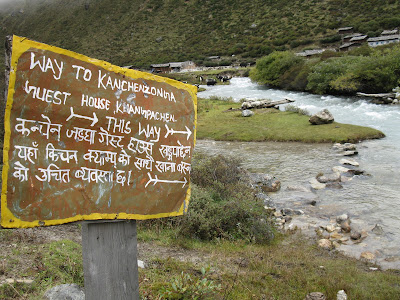 WAY TO KANCHENZONGA
GUEST HOUSE, KHAMPACHEN.
THIS WAY
कन्चेन जङघा गेस्ट हाउस खाम्पाचेन
यहाँ किचन क्याम्प को साथै खाना बस्न
को उचित ब्यवस्ता छ।